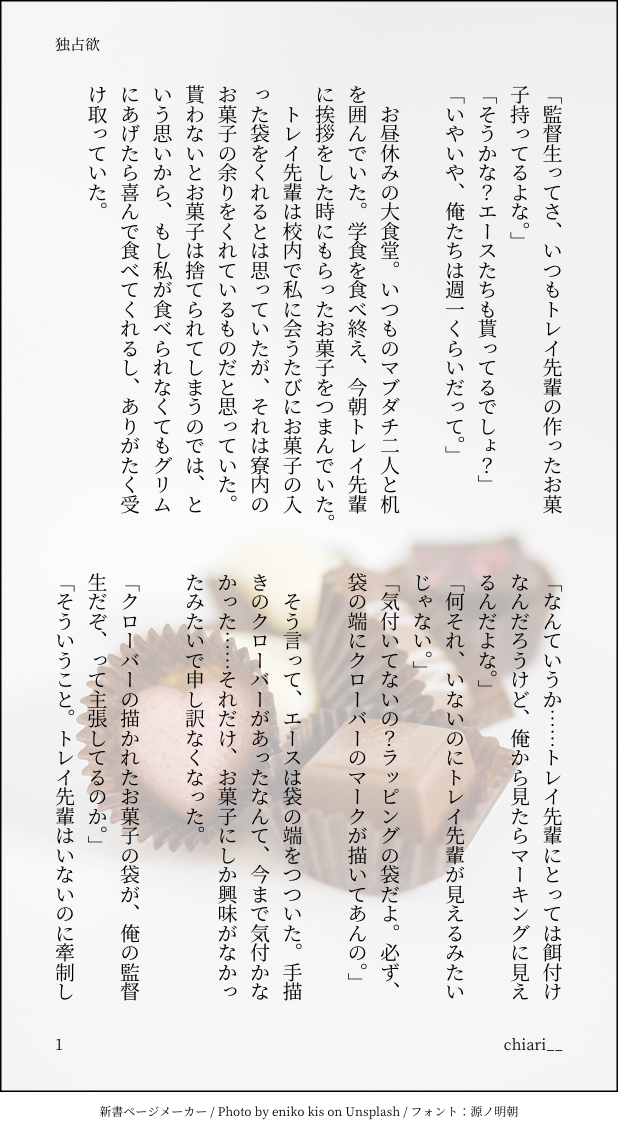 独占欲
「監督生ってさ、いつもトレイ先輩の作ったお菓
子持ってるよな。」
「そうかな？エースたちも貰ってるでしょ？」
「いやいや、俺たちは週一くらいだって。」
お昼休みの大食堂。いつものマブダチ二人と机
を囲んでいた。学食を食べ終え、今朝トレイ先輩
に挨拶をした時にもらったお菓子をつまんでいた。
トレイ先輩は校内で私に会うたびにお菓子の入
った袋をくれるとは思っていたが、それは寮内の
お菓子の余りをくれているものだと思っていた。
貰わないとお菓子は捨てられてしまうのでは、と
いう思いから、もし私が食べられなくてもグリム
にあげたら喜んで食べてくれるし、ありがたく受
け取っていた。
「なんていうか……トレイ先輩にとっては餌付け
なんだろうけど、俺から見たらマーキングに見え
るんだよな。」
「何それ、いないのにトレイ先輩が見えるみたい
じゃない。」
「気付いてないの？ラッピングの袋だよ。必ず、
袋の端にクローバーのマークが描いてあんの。」
そう言って、エースは袋の端をつついた。手描
きのクローバーがあったなんて、今まで気付かな
かった……それだけ、お菓子にしか興味がなかっ
たみたいで申し訳なくなった。
「クローバーの描かれたお菓子の袋が、俺の監督
生だぞ、って主張してるのか。」
「そういうこと。トレイ先輩はいないのに牽制し
1
chiari__
新書ページメーカー / Photo by eniko kis on Unsplash / フォント：源ノ明朝